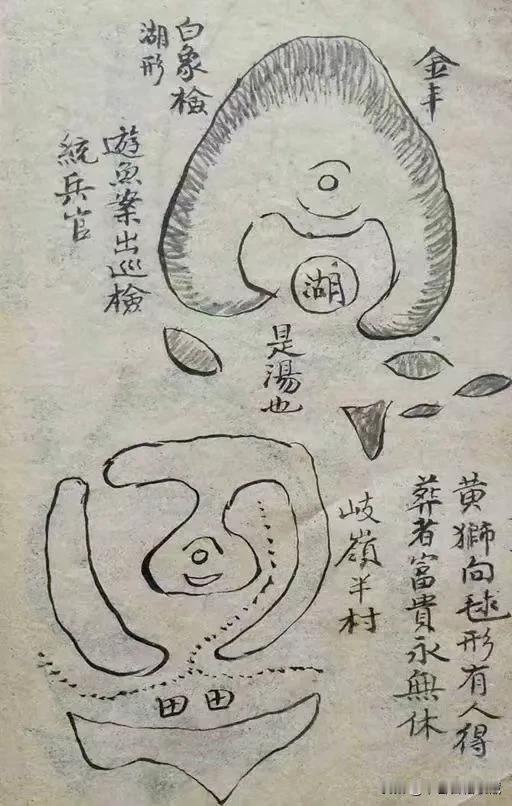 金丰
白象檢
湖形
遊魚案出巡檢
統兵官
湖
是湯也
黄獅向毬形有人得
葬者富貴永無休
岐嶺半村
田田